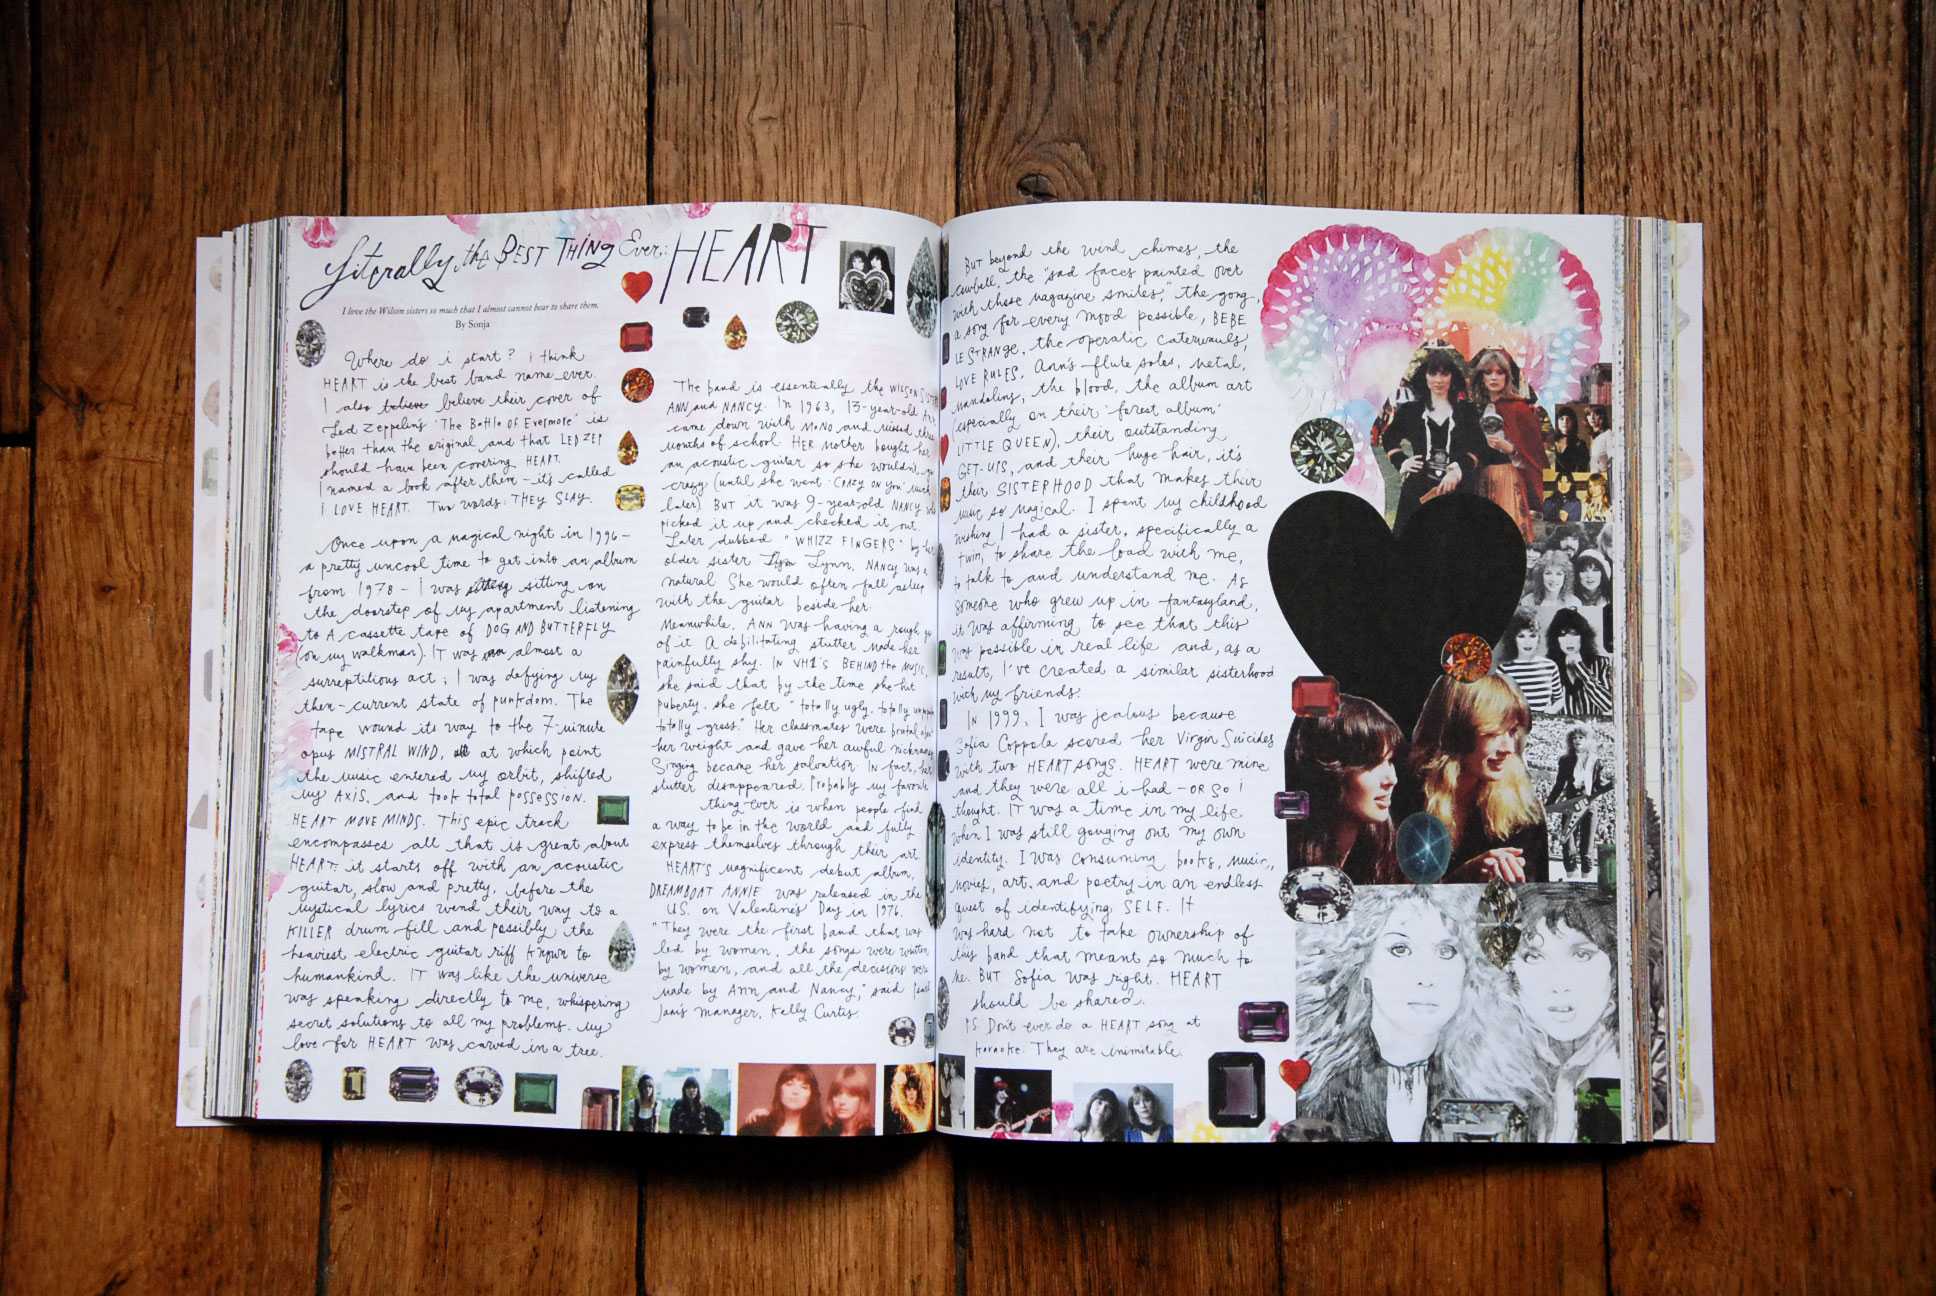 Literally the BEST THING Ever: HEART
I love the Wilson sisters so much that I almost cannot bear to share them.
By Sonja
Where do i start? i think
HEART is the best band name ever.
I also believe believe their cover of
Led Zeppelin's 'The Battle of Evermore' is
better than the original and that LED ZEP
should have been covering HEART.
I named a book after them - it's called
I LOVE HEART. Two words: THEY SLAY.
Once upon a magical night in 1996 -
a pretty uncool time to get into an album
from 1978 - I was sitting on
the doorstep of my apartment listening
to A cassette tape of DOG AND BUTTERFLY
(on my walkman). IT was almost a
surreptitious act; I was defying my
then-current state of punkdom. The
tape wound its way to the 7-minute
opus MISTRAL WIND, at which point
the music entered my orbit, shifted
my AXIS, and took total possession.
HEART MOVE MINDS. THIS epic track
encompasses all that is great about
HEART: it starts off with an acoustic
guitar, slow and pretty, before the
mystical lyrics wend their way to a
KILLER drum fill and possibly the
heaviest electric guitar riff known to
humankind. IT was like the universe
was speaking directly to me, whispering
secret solutions to all my problems. My
love for HEART was carved in a tree.
The band is essentially the WILSON
ANN and NANCY. In 1963, 13-year-old Ann
came down with MONO and missed three
months of school. HER mother bought her
an acoustic guitar so she wouldn't go
crazy (until she went 'CRAZY ON YOU' much
later). BUT it was 9-year-old NANCY who
picked it up and checked it out.
Later dubbed "WHIZZ FINGERS" by her
older sister Lynn, NANCY was a
natural. She would often fall asleep
with the guitar beside her.
Meanwhile, ANN was having a rough go
of it. A debilitating stutter made her
painfully shy. IN VH1's BEHIND the MUSIC,
she said that by the time she hit
puberty, she felt "totally ugly, totally
totally gross." Her classmates were brutal about
her weight and gave her awful nicknames.
Singing became her salvation. IN fact, her
stutter disappeared. Probably my favorite
thing ever is when people find
a way to be in the world and fully
express themselves through their art.
HEART'S magnificent debut album,
DREAMBOAT ANNIE was released in the
U.S. on Valentine's Day in 1976.
"They were the first band that was
led by women, the songs were written
by women, and all the decisions were
made by Ann and Nancy," said
manager, Kelly Curtis.
BUT beyond the wind chimes, the
cowbell, the "sad faces painted over
with those magazine smiles," the gong,
a song for every mood possible, BEBE
LE STRANGE, the operatic caterwauls,
LOVE RULES, Ann's flute solos, metal,
mandolins, the blood, the album art
(especially on their 'forest album'
LITTLE QUEEN), their outstanding
GET-UPS, and their huge hair, it's
their SISTERHOOD that makes their
music so magical. I spent my childhood
wishing I had a sister, specifically a
twin, to share the load with me,
to talk to and understand me. As
someone who grew up in fantasyland,
it was affirming to see that this
was possible in real life and, as a
result, I've created a similar sisterhood
with my friends.
IN 1999, I was jealous because
Sofia Coppola scored her Virgin Suicides
with two HEART songs. HEART were mine
and they were all i had - OR SO I
thought. IT was a time in my life
when I was still gouging out my own
identity. I was consuming books, music,
movies, art, and poetry in an endless
quest of identifying SELF. It
was hard not to take ownership of
this band that meant so much to
me. BUT Sofia was right. HEART
should be shared.
PS Don't ever do a HEART song at
karaoke. They are inimitable.